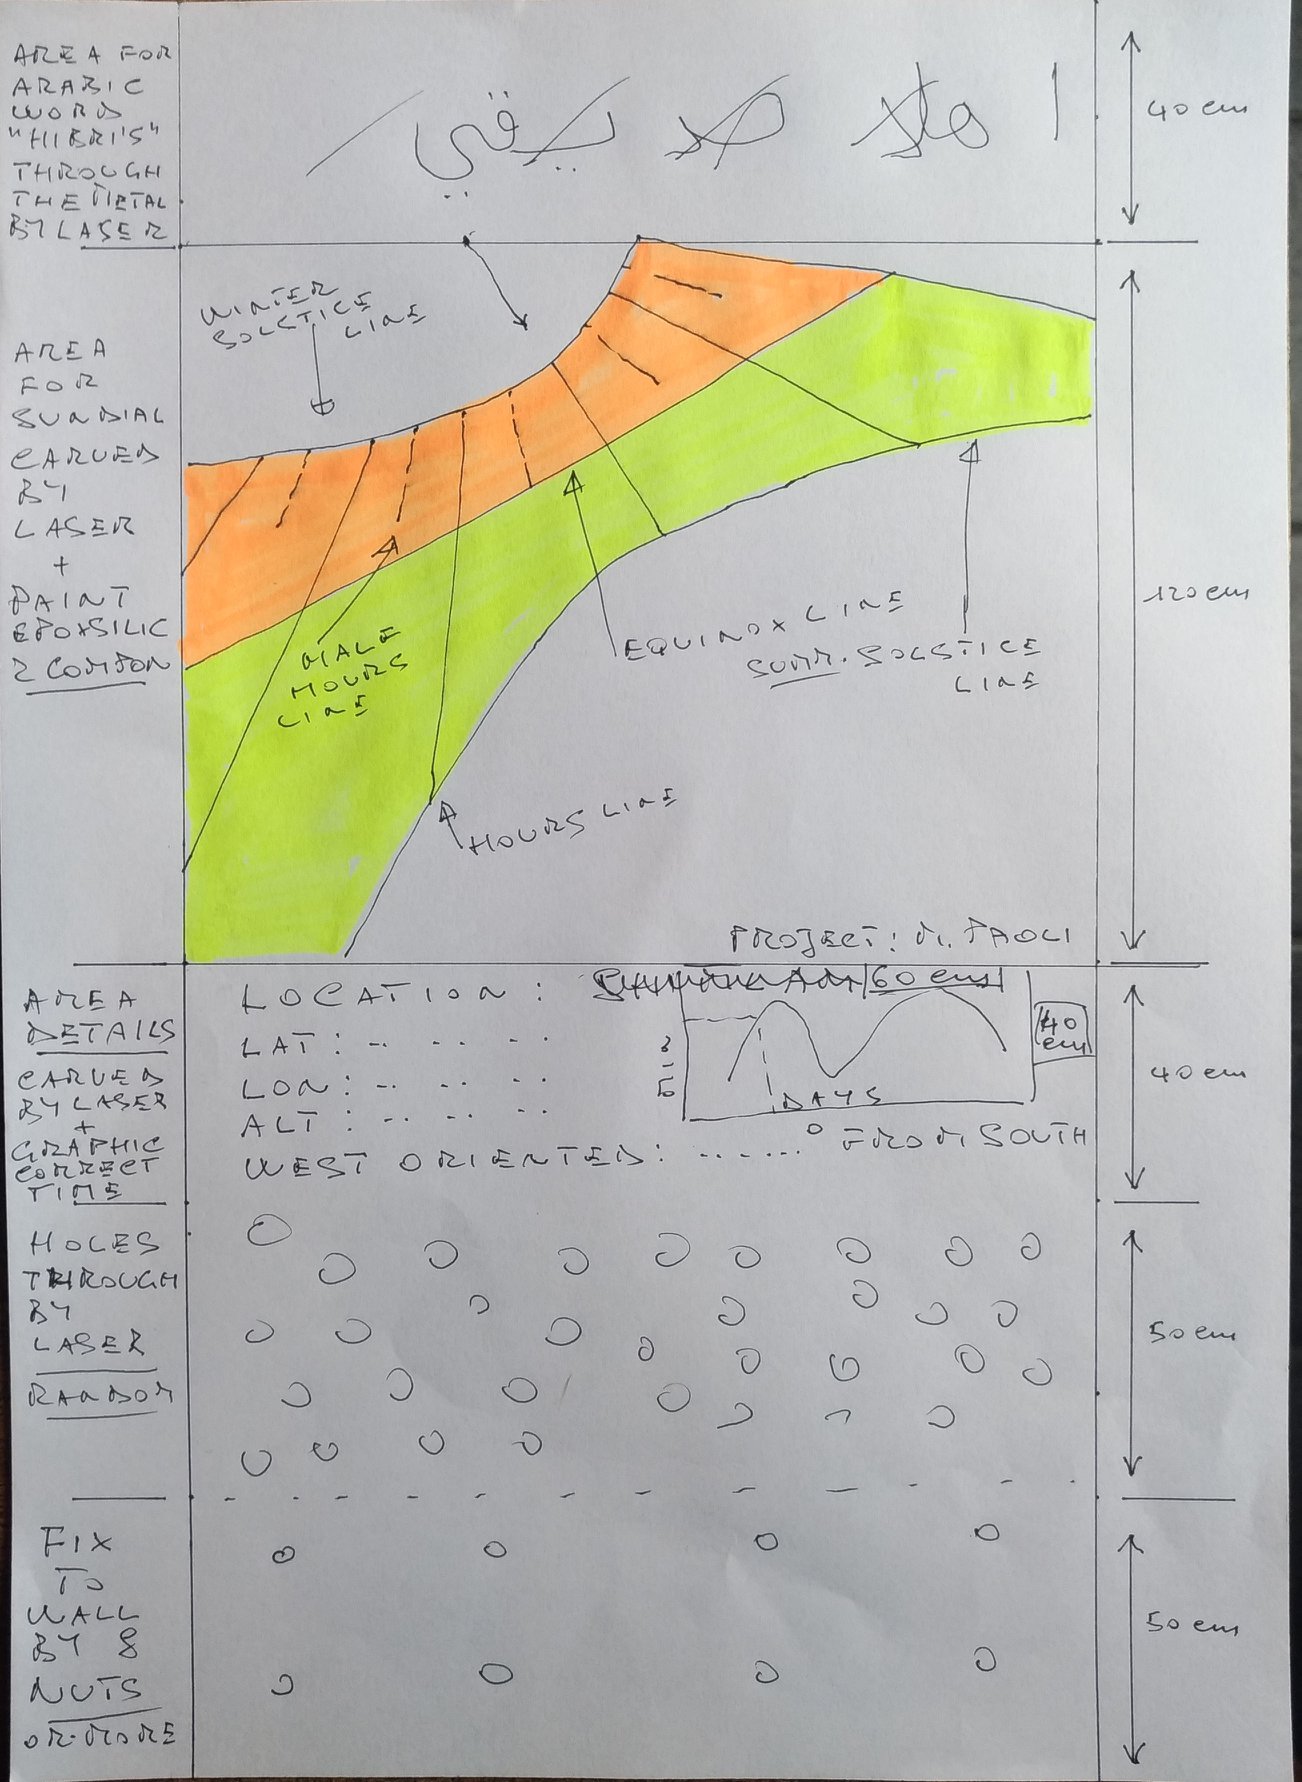 AREA FOR
ARABIC
WORD
"HIBRI'S"
THROUGH
THE METAL
BY LASER
اهلا صديقي
40 cm
WINTER
SOLSTICE
LINE
AREA
FOR
SUNDIAL
CARVED
BY
LASER
+
PAINT
EPOXSILIC
2 COMPON
120 cm
HALF
HOURS
LINE
EQUINOX LINE
SUMM. SOLSTICE
LINE
HOURS LINE
PROJECT: M. PAOLI
AREA
DETAILS
CARVED
BY LASER
+
GRAPHIC
CORRECT
TIME
LOCATION:
60 cm
LAT: -- -- --
LON: -- -- --
ALT: -- -- --
DAYS
40
cm
WEST ORIENTED: ...... ° FROM SOUTH
40 cm
HOLES
THROUGH
BY
LASER
RANDOM
50 cm
FIX
TO
WALL
BY 8
NUTS
OR MORE
50 cm